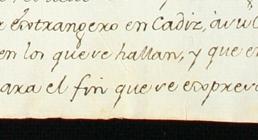 estrangero en Cadiz, á su
en los que se hallan, y que en
para el fin que se espresa